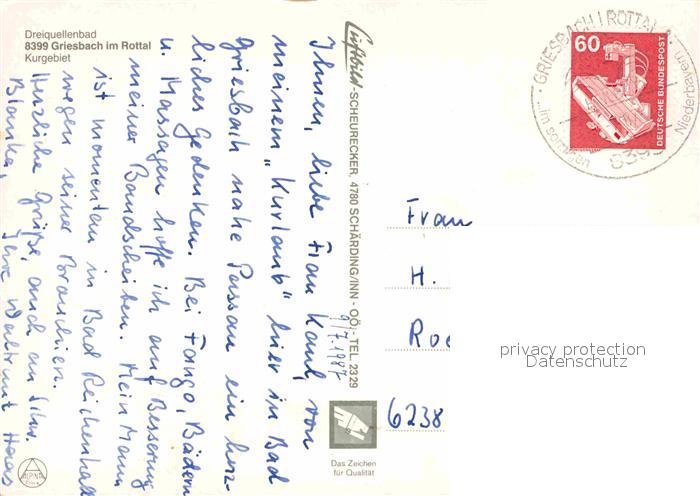 Dreiquellenbad
8399 Griesbach im Rottal
Kurgebiet
9/7.1987
Ihnen, liebe Frau Kaul, von
meinem „Kurlaub" hier in Bad
Griesbach nahe Passau ein herz-
liches Gedenken. Bei Fango, Bädern
u. Massagen hoffe ich auf Besserung
meiner Bandscheiben. Mein Mann
ist momentan in Bad Reichenhall
wegen seiner Bronchien.
Herzliche Grüße, auch an Ihre
Blanka, Ihre Waltraut Haas
Luftbild-SCHEURECKER, 4780 SCHÄRDING/INN - OÖ. - TEL. 23 29
Das Zeichen
für Qualität
ALPINA
Frau
H.
Roe
6238
GRIESBACH I ROTTAL
im sonnigen Niederbayern
839
60
DEUTSCHE BUNDESPOST
privacy protection
Datenschutz